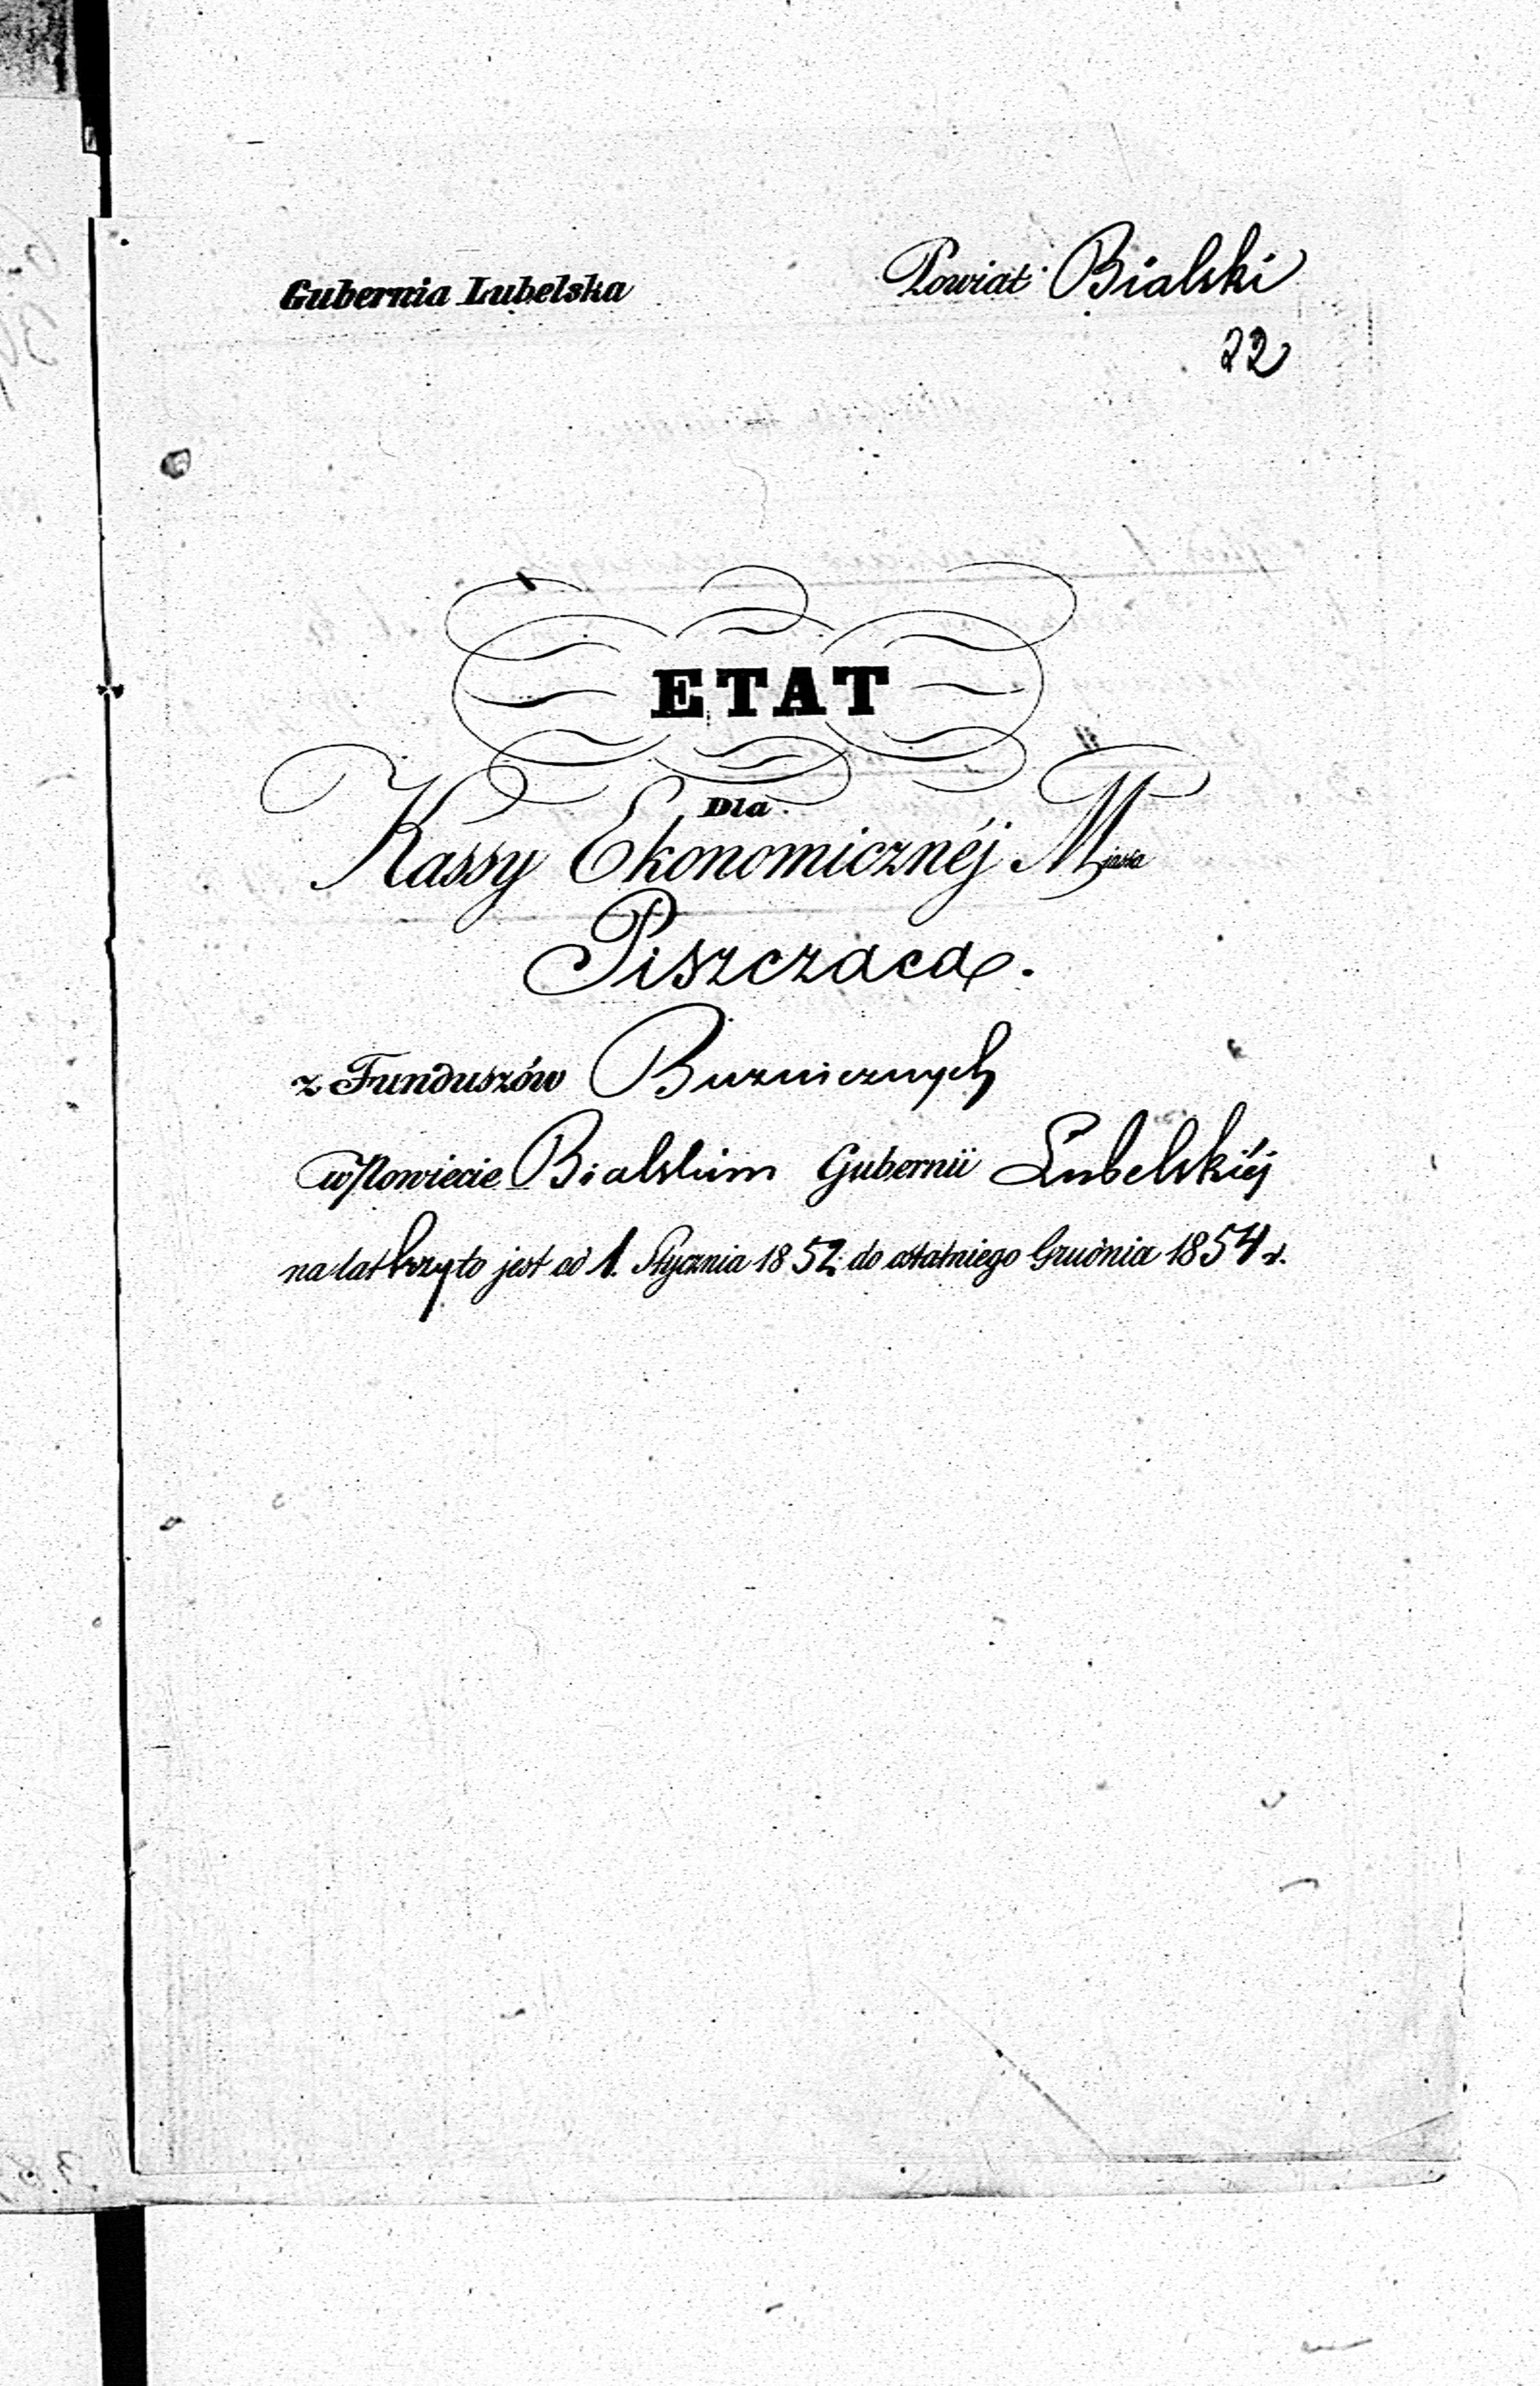 Gubernia Lubelska
Powiat Bialski
22
ETAT
Dla
Kassy Ekonomicznéj Miasta
Piszczaca.
z Funduszów Buznicznych
w Powiecie Bialskim Gubernii Lubelskiéj
na lat trzy to jest od 1. Stycznia 1852 do ostatniego Grudnia 1854 r.